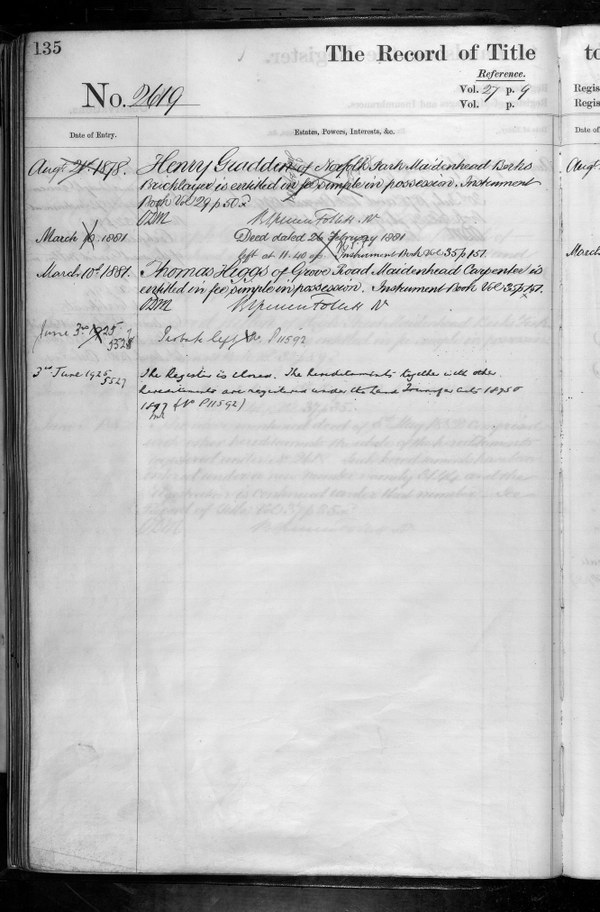 135
The Record of Title
to
Reference.
No. 2619
Vol. 27 p. 9
Vol. p.
Regis
Regis
Date of Entry.
Estates, Powers, Interests, &c.
Date of
Augt 21st 1878.
Henry Gladding of Norfolk Park Maidenhead Berks
Bricklayer is entitled in fee simple in possession. Instrument
Book Vol 29 p 50.
ODM
B Spencer Follett
March 10. 1881
Deed dated 26 February 1881
left at 11.40 Instrument Book Vol 35 p 151.
March 10th 1881.
Thomas Higgs of Grove Road Maidenhead Carpenter is
entitled in fee simple in possession. Instrument Book Vol 35 p 151.
ODM
B Spencer Follett
June 3rd 1925
5528
left P11592
3rd June 1925
5527
The Register is closed. The hereditaments together with other
hereditaments are registered under the Land Transfer Acts 1875 &
1897 (No P11592)
Augt
March